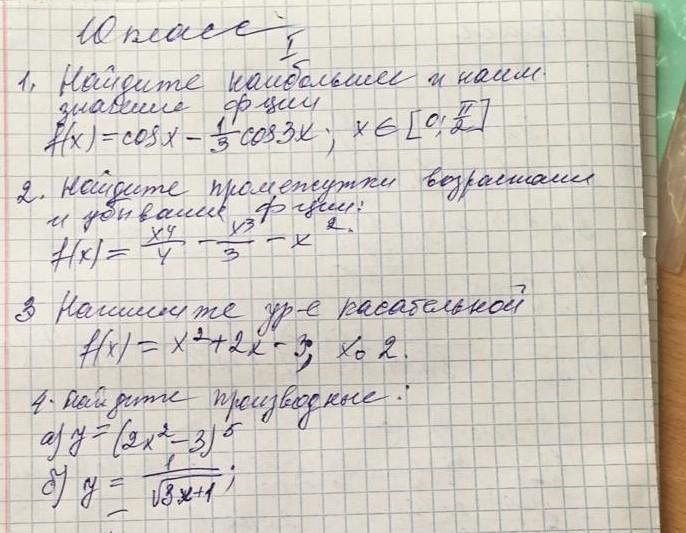 10 класс
I
1. Найдите наибольшее и наим.
значение фции
f(x) = cosx - 1/3 cos3x; x ∈ [0; π/2]
2. Найдите промежутки возрастания
и убывания фции:
f(x) = x^4/4 - x^3/3 - x^2.
3 Напишите ур-е касательной
f(x) = x^2 + 2x - 3; x0 2.
4. Найдите производные:
а) y = (2x^2 - 3)^5
б) y = 1/√(3x+1);